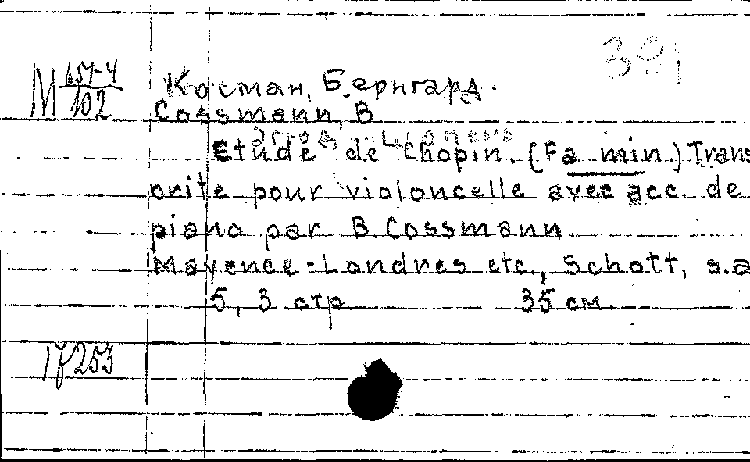 391
М 657-4/102
Косман, Бернгард.
Cossmann, B
Etude de Chopin. (Fa min.) Trans
crite pour violoncelle avec acc. de
piano par B. Cossmann
Mayence-Londres etc., Schott, s.a
5, 3 стр 35 см
17253